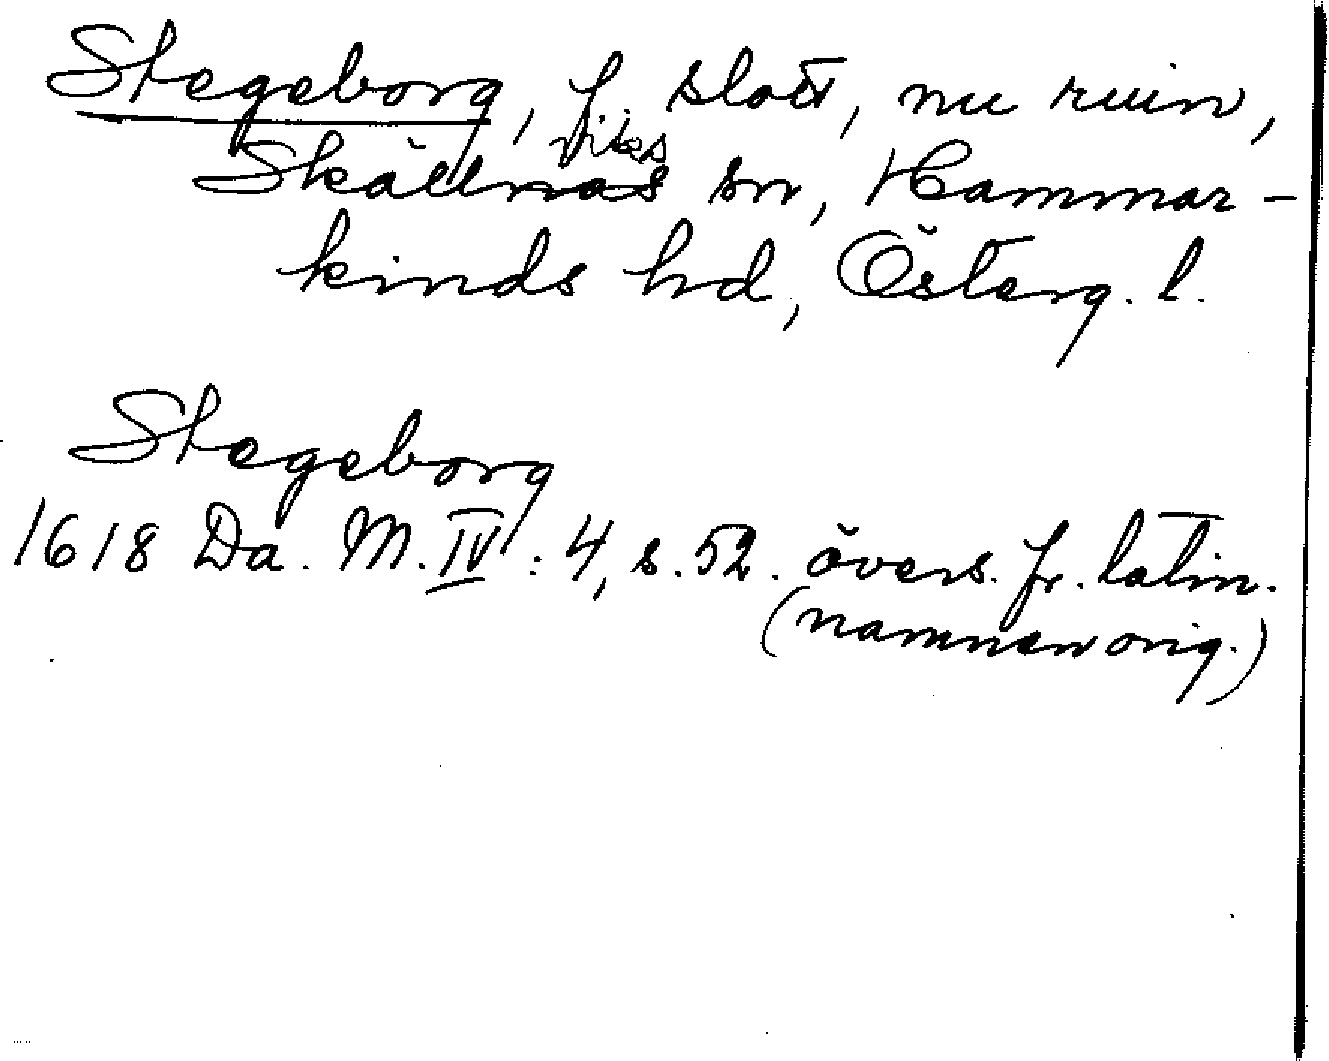 Stegeborg, f. slott, nu ruin,
Skällviks sn, Hammar-
kinds hd, Österg. l.
Stegeborg
1618 Da. M. IV: 4, s. 52. övers. fr. latin.
(namnen orig.)